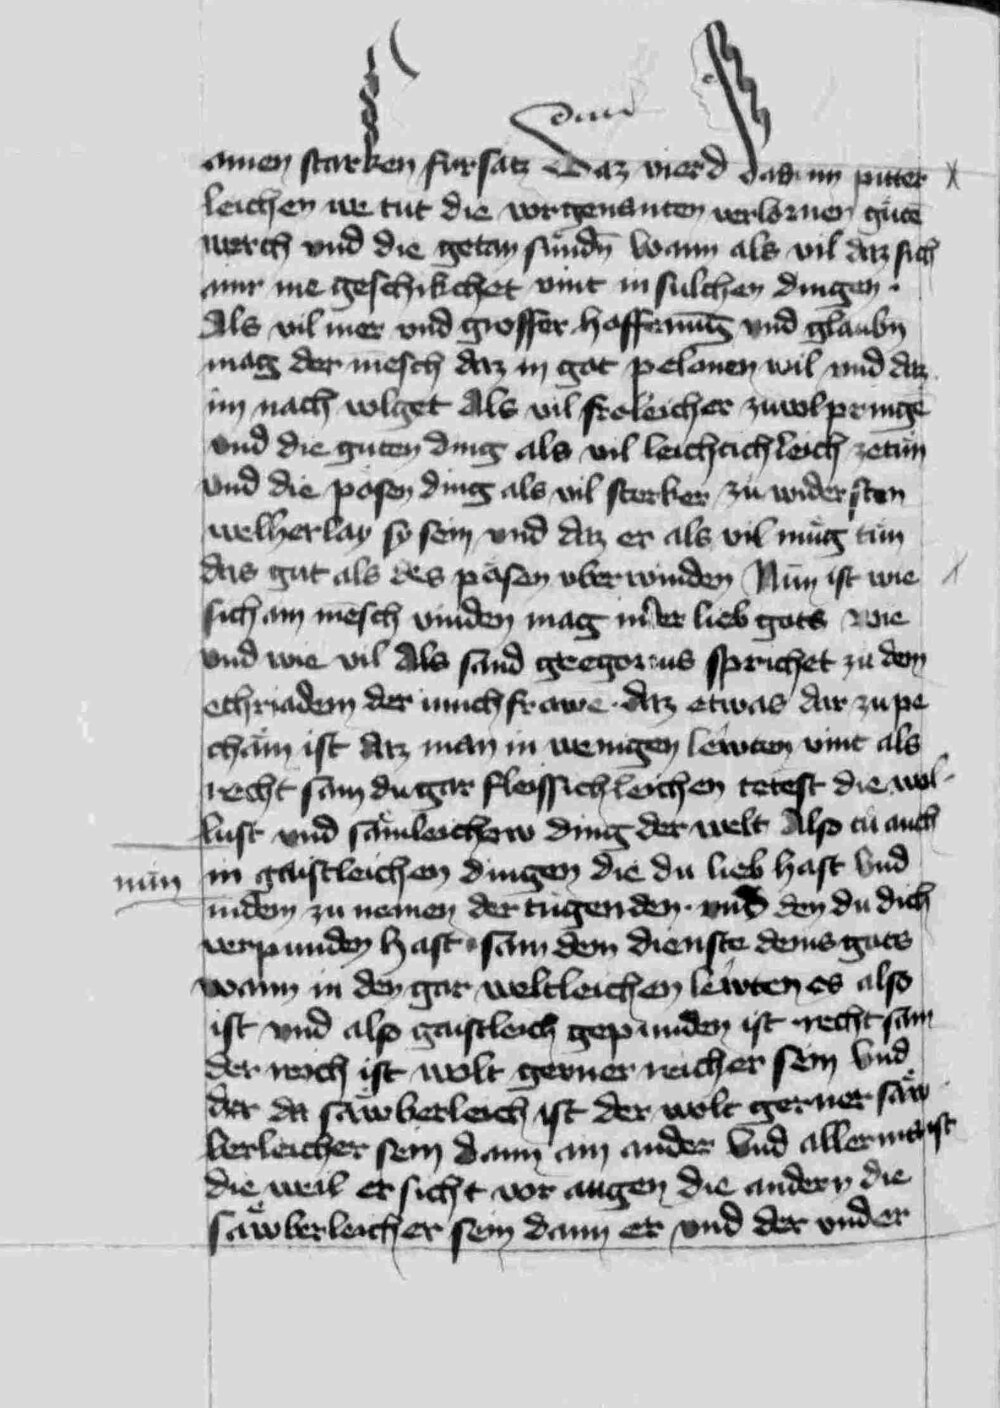 ainen starken fürsatz Daz vierd daz im pitter
leichen we tut die vorgenanten verlornen gůte
werch vnd die getan sündn̄ wann als vil daz sich
ainr me geschikchet vint in sülchen dingen ·
Als vil mer vnd grosser hoffenūg vnd glaubn̄
mag der mēsch daz in got pelonen wil vnd daz
im nach volget Als vil froleicher zuuolpringē
vnd die guten ding als vil leichtichleich zetůn
vnd die pösen ding als vil sterker zu widersten
welherlay sy sein vnd daz er als vil müg tůn
das gut als des pösen vberwinden Nůn ist wie
sich ain mēsch vinden mag in der lieb gots wie
vnd wie vil Als sand gregorius sprichet zu dem
ethriadem der junchfrawē · daz etwas dar zu pe
cham̄ ist daz man in wenigen lewten vint als
recht sam du gar fleissichleichen tetest die wol
lust vnd sämleichew ding der welt Also tů auch
nůn in gaistleichen dingen die du lieb hast vnd
indem zu nemen der tugenden · vnd den du dich
verpunden hast sam dem dienste deins gots
wann in den gar weltleichen lewten es also
ist vnd also gaistleich gepunden ist · recht sam
der reich ist wolt gerner reicher sein vnd
der da säwberleich ist der wolt gerner säw
berleicher sein dann ain ander vnd allermaist
die weil er sicht vor augen die andern die
säwberleicher sein dann er vnd der vnder